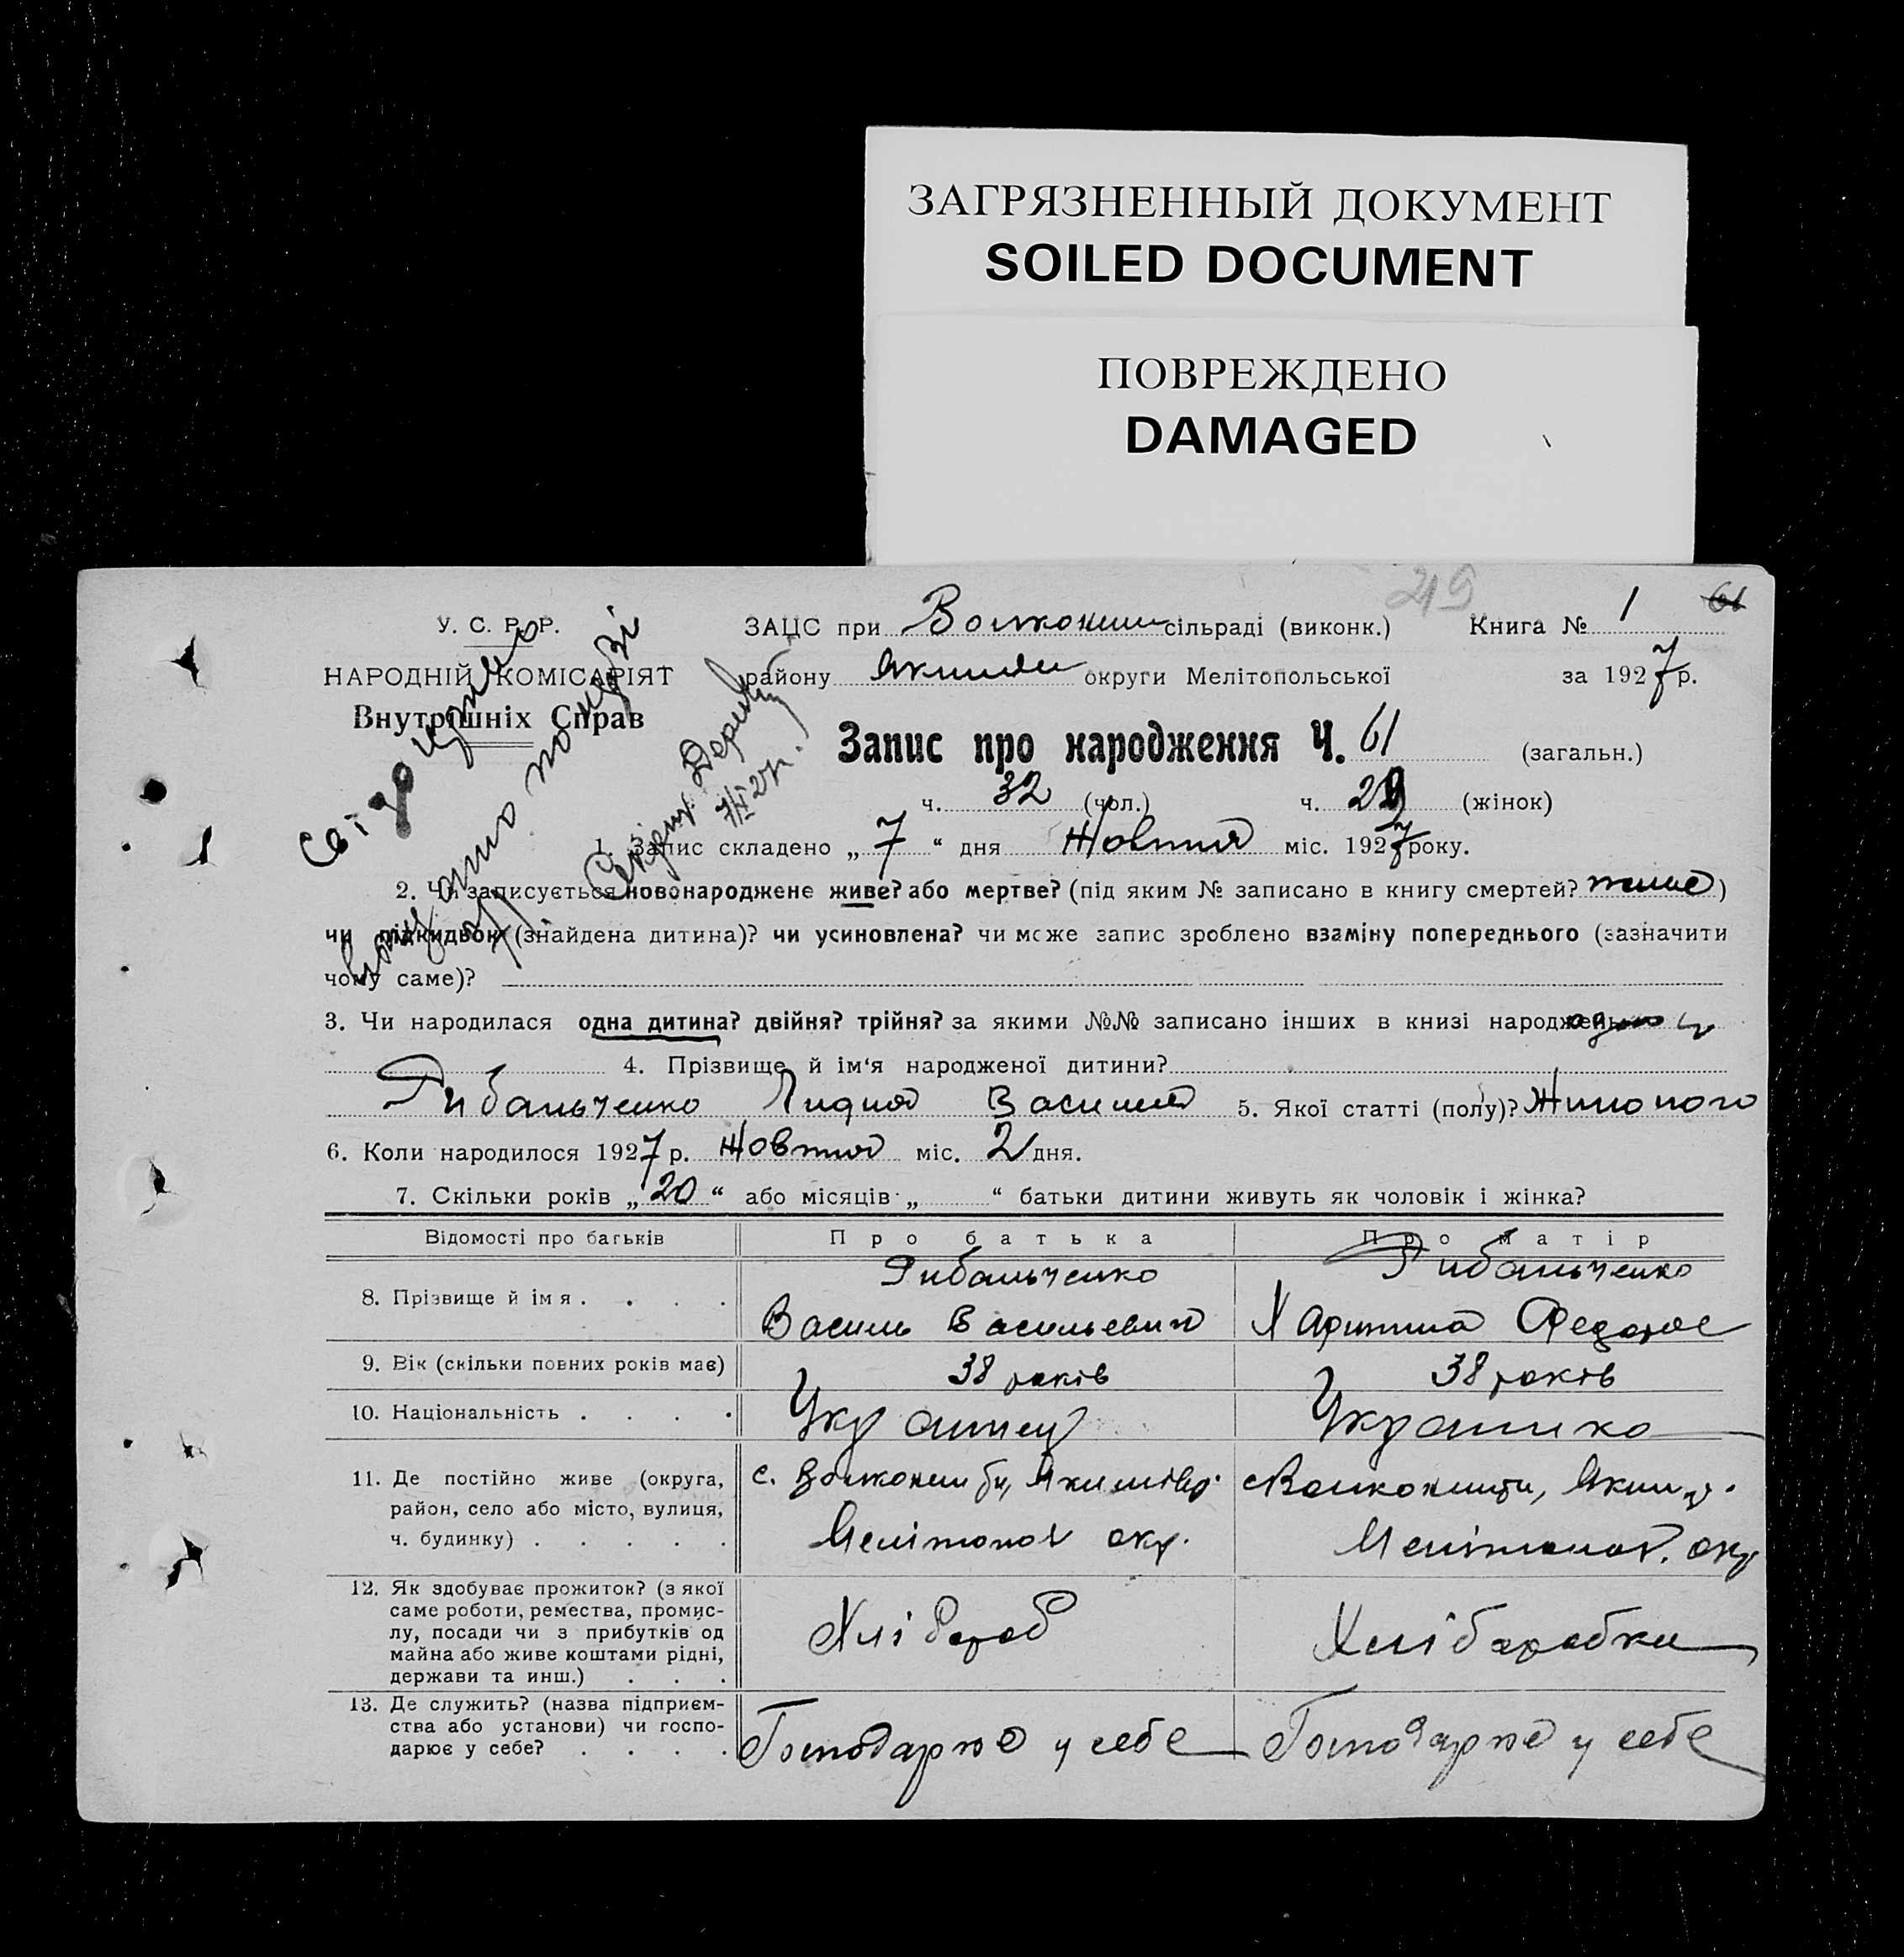 ЗАГРЯЗНЕННЫЙ ДОКУМЕНТ
SOILED DOCUMENT
ПОВРЕЖДЕНО
DAMAGED
У. С. Р. Р.
НАРОДНІЙ КОМІСАРІЯТ
Внутрішніх Справ
219
Книга № 1 61
ЗАЦС при сільраді (виконк.)
району округи Мелітопольської за 1927 р.
Запис про народження Ч. 61 (загальн.)
ч. 32 (чол.) ч. 29 (жінок)
1. Запис складено „ 7 “ дня Жовтня міс. 1927 року.
2. Чи записується новонароджене живе? або мертве? (під яким № записано в книгу смертей? живе)
чи підкидьок (знайдена дитина)? чи усиновлена? чи може запис зроблено взаміну попереднього (зазначити
чому саме)?
3. Чи народилася одна дитина? двійня? трійня? за якими №№ записано інших в книзі народжень
4. Прізвище й ім‘я народженої дитини?
Рибальченко Лидия Василів 5. Якої статті (полу)? Жиночого
6. Коли народилося 1927 р. Жовтня міс. 2 дня.
7. Скільки років „ 20 “ або місяців „ “ батьки дитини живуть як чоловік і жінка?
Відомості про батьків Про батька Про матір
8. Прізвище й імя . . . . Рибальченко Рибальченко
Василь Васильевич Харитина Федоров
9. Вік (скільки повних років має) 38 років 38 років
10. Національність . . . . Українец Українка
11. Де постійно живе (округа,
район, село або місто, вулиця,
ч. будинку) . . . . .
Мелітопол окр. Мелітопол. окр
12. Як здобуває прожиток? (з якої
саме роботи, ремества, промис-
лу, посади чи з прибутків од
майна або живе коштами рідні,
держави та инш.) . . .
Хлібороб Хліборобка
13. Де служить? (назва підприєм-
ства або установи) чи госпо-
дарює у себе? . . . .
Господарює у себе Господарює у себе